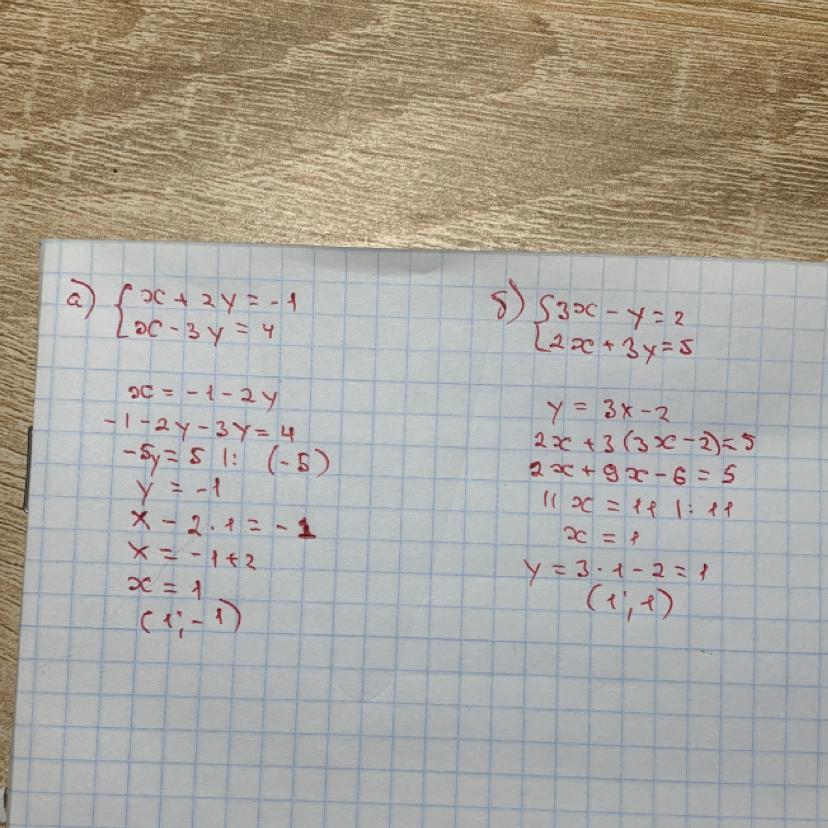 а) { x + 2y = -1
x - 3y = 4
x = -1 - 2y
-1 - 2y - 3y = 4
-5y = 5 |: (-5)
y = -1
x - 2 · 1 = -1
x = -1 + 2
x = 1
(1; -1)
б) { 3x - y = 2
2x + 3y = 5
y = 3x - 2
2x + 3(3x - 2) = 5
2x + 9x - 6 = 5
11x = 11 |: 11
x = 1
y = 3 · 1 - 2 = 1
(1; 1)